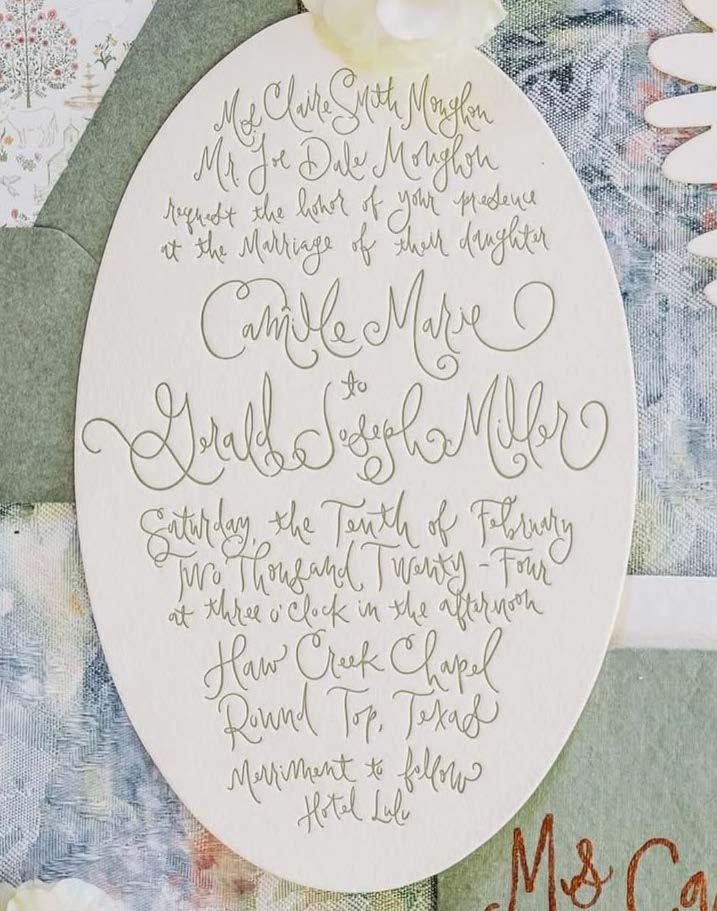 Ms. Claire Smith Monghon
Mr. Joe Dale Monghon
request the honor of your presence
at the Marriage of their daughter
Camille Marie
to
Gerald Joseph Miller
Saturday, the Tenth of February
Two Thousand Twenty - Four
at three o'Clock in the afternoon
Haw Creek Chapel
Round Top, Texas
Merriment to follow
Hotel Lulu
Ms Ca